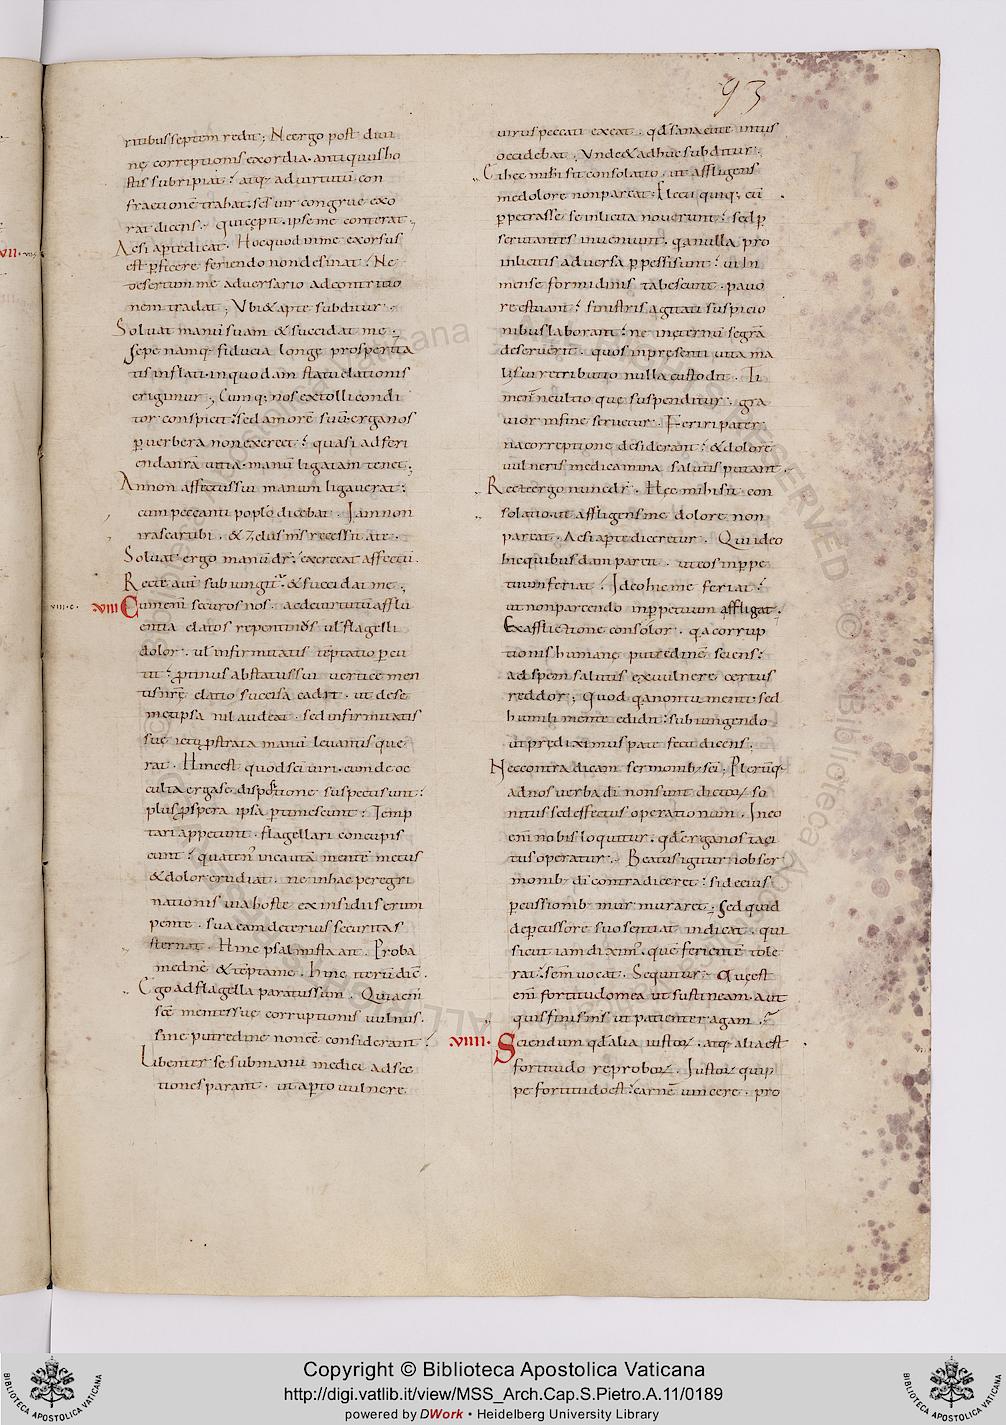 93
ritibus septem redit; Ne ergo post divi
nę correptionis exordia. antiquus ho
stis subripiat? atq; ad virtutū con
fractionē trahat. sed vir congrue exo
rat dicens. qui cępit. ipse me conterat;
Ac si apte dicat. Hoc quod in me exorsus
est pficere feriendo non desinat. Ne
desertum me adversario ad contritio
nem tradat; Vbi & apte subditur.
Solvat manū suam & succidat me.
Sępe namq fiducia longę prosperita
tis inflati. in quodam statu elationis
erigimur; Cumq; nos extolli condi
tor conspicit. sed amorē suū erga nos
p verbera non exercet? quasi ad feri
endanrā vitia. manū ligatam tenet;
An non affectus sui manum ligaverat?
cum peccanti poplo dicebat. Iam non
irascar tibi. & zelus ms recessit a te.
Solvat ergo manū dr? exerceat affectū.
Recte aut subiungit. & succidat me;
viii·c·
VIII
Cum enī securos nos. ac de virtutū afflu
entia elatos repentinus vl flagelli
dolor. vl infirmitatis tēptatio pcu
tit? protinus ab statu sui verticē men
tis nrę elatio succisa cadit. ut de se
met ipsa nil audeat. sed infirmitatis
suę ictu pstrata manū levantis quę
rat. Hinc est quod sci viri. cum de oc
culta erga se dispositione suspecti sunt?
plus pspera ipsa ptimescunt? Temp
tari appetunt. flagellari concupis
cunt? quaten incautā mentē metus
& dolor erudiat. ne in hac peregri
nationis via hoste ex insidiis erum
pente. sua eam deterius securitas
sternat. Hinc psalmista ait. Proba
me dnē & tēpta me. Hinc iterū dic̄.
Ego ad flagella paratus sum. Quia enī
scē mentes suę corruptionis vulnus.
sine putredine non eē considerant?
Libenter se sub manu medici ad sec
tiones parant. ut apto vulnere
virus peccati exeat. qd sana cute intus
occidebat; Vnde & adhuc subditur;
Et hęc mihi sit consolatio. ut affligens
me dolore non parcat. Electi quiq; cū
ppetrasse se inlicita noverunt? sed p
scrutantes inveniunt. qa nulla pro
inlicitis adversa ppessi sunt? vi in
mense formidinis tabescunt. pavo
re ęstuant? sinistris agitati suspicio
nibus laborant? ne in ęternū se grā
deseruerit. quos in pręsenti vita ma
li sui retributio nulla custodit. Ti
ment ne ultio quę suspenditur. gra
vior in fine servetur. Feriri pater
na correptione desiderant? & dolorē
vulneris medicamina salutis putant.
Recte ergo nunc dr. Hęc mihi sit con
solatio. ut affligens me dolore non
parcat. Ac si apte diceretur. Qui ideo
hic quibusdam parcit. ut eos in ppe
tuum feriat? Ideo hic me feriat?
ut non parcendo in ppetuum affligat.
Ex afflictione consolor. qa corrup
tionis humanę putredinē sciens?
ad spem salutis ex vulnere certus
reddor; Quod qa non tumenti sed
humili mente edidit? subiungendo
ut prędiximus patefecit dicens;
Nec contradicam sermonib; sci; Plerūq.
ad nos verba dī non sunt dictorꝝ so
nitus sed effectus operationum. In eo
enī nobis loquitur. qd erga nos taci
tus operatur. Beatus igitur iob ser
monib; dī contradiceret? si de eius
pcussionib murmuraret; Sed quid
de pcussore suo sentiat indicat. qui
sicut iam diximꝰ. quę ferientē tole
rat? sēm vocat. Sequitur. Quę est
enī fortitudo mea ut sustineam. aut
quis finis ms ut patienter agam?
VIIII.
Sciendum qd alia iustorꝝ. atq alia est
fortitudo reproborꝝ. Iustorꝝ quip
pe fortitudo est? carnē vincere. pro
Copyright © Biblioteca Apostolica Vaticana
http://digi.vatlib.it/view/MSS_Arch.Cap.S.Pietro.A.11/0189
powered by DWork • Heidelberg University Library
BIBLIOTECA APOSTOLICA VATICANA
BIBLIOTECA APOSTOLICA VATICANA